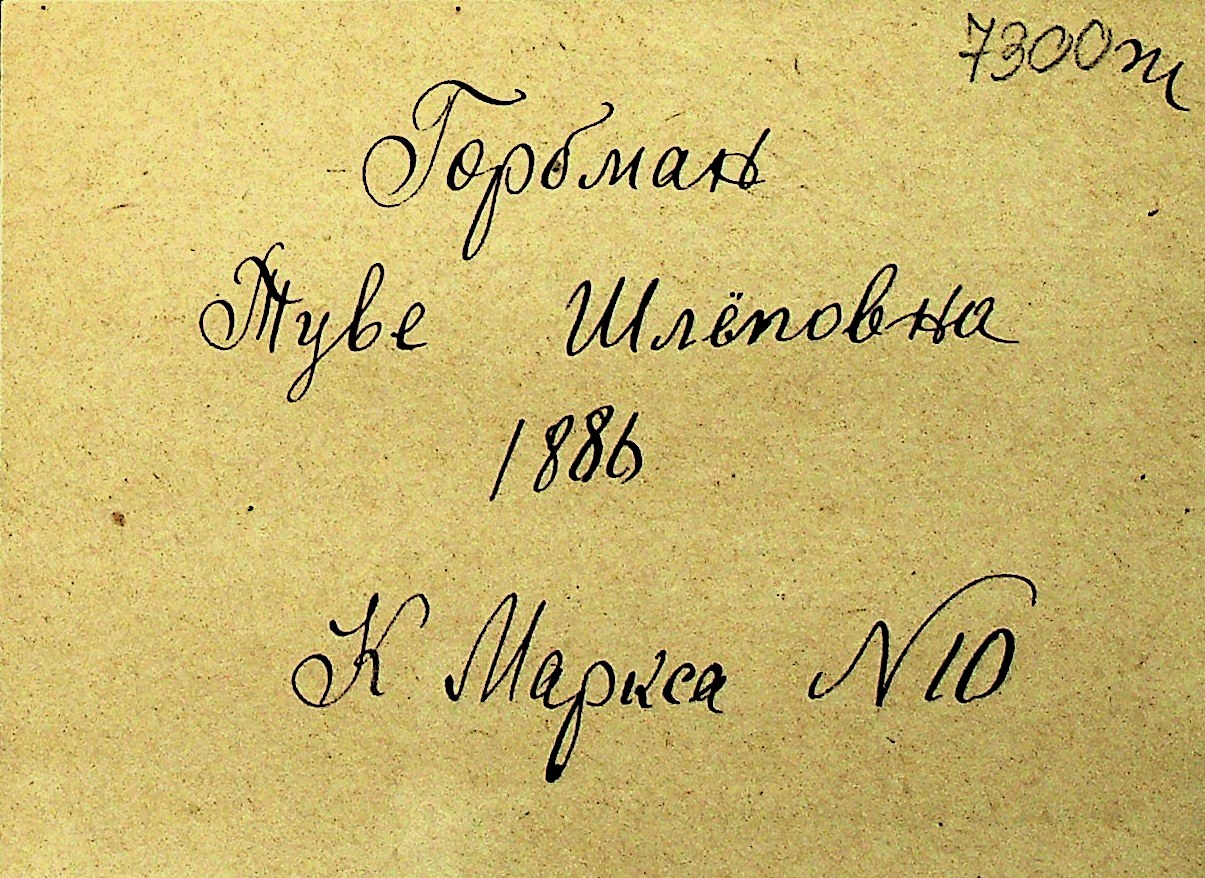 7300ж
Горбман
Туве Шлёповна
1886
К Маркса N10